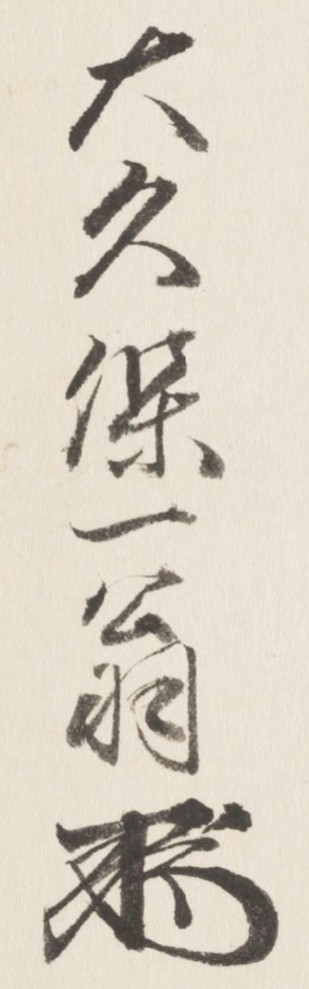 大久保一翁